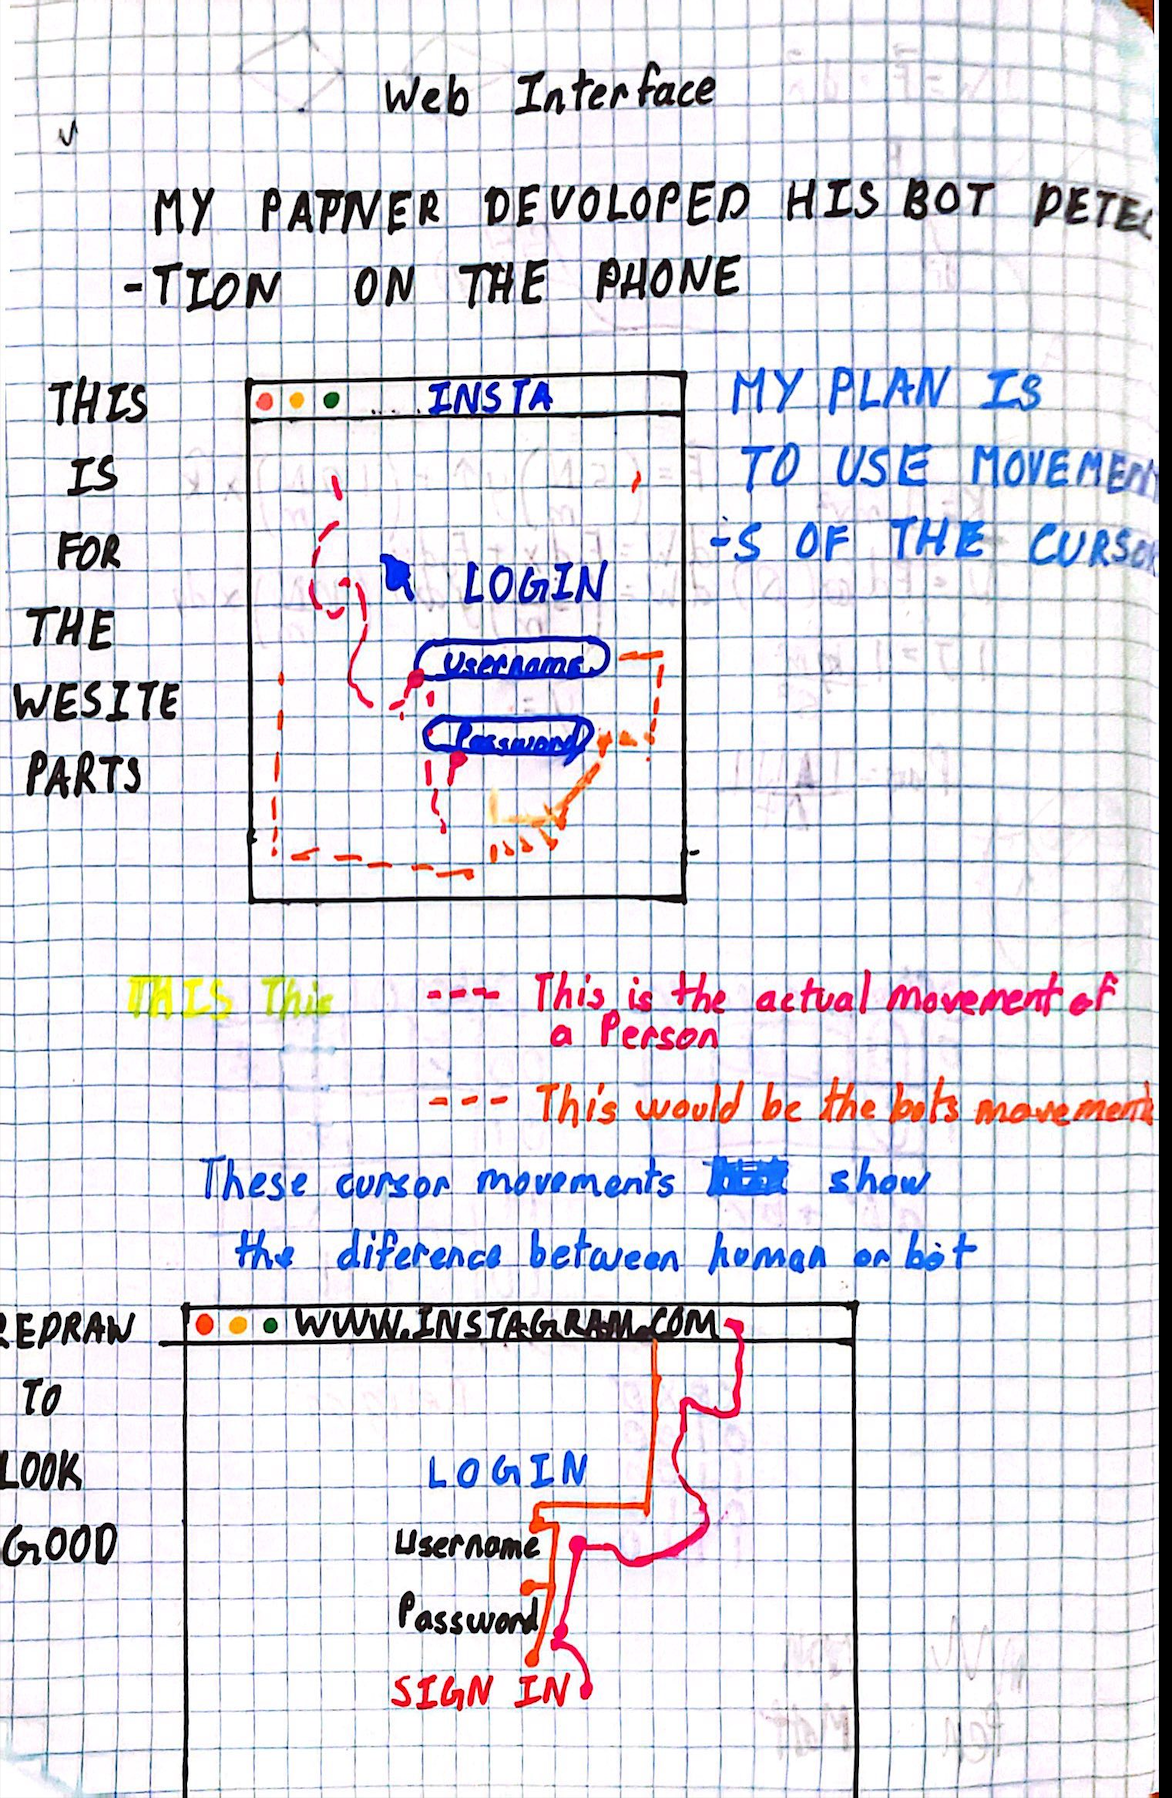 Web Interface
MY PATNER DEVOLOPED HIS BOT DETEC
-TION ON THE PHONE
THIS
IS
FOR
THE
WESITE
PARTS
INSTA
LOGIN
Username
Password
MY PLAN IS
TO USE MOVEMENT
-S OF THE CURSOR
THIS This
--- This is the actual movement of
a Person
--- This would be the bots movements
These cursor movements show
the diference between human or bot
REDRAW
TO
LOOK
GOOD
WWW.INSTAGRAM.COM
LOGIN
Username
Password
SIGN IN